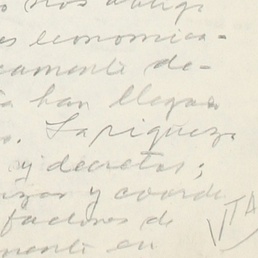 o nos obliga
es economica-
camente de-
a han llegado
o. La riqueza
y decretos;
izar y coordi
factores de
mente en
VITA